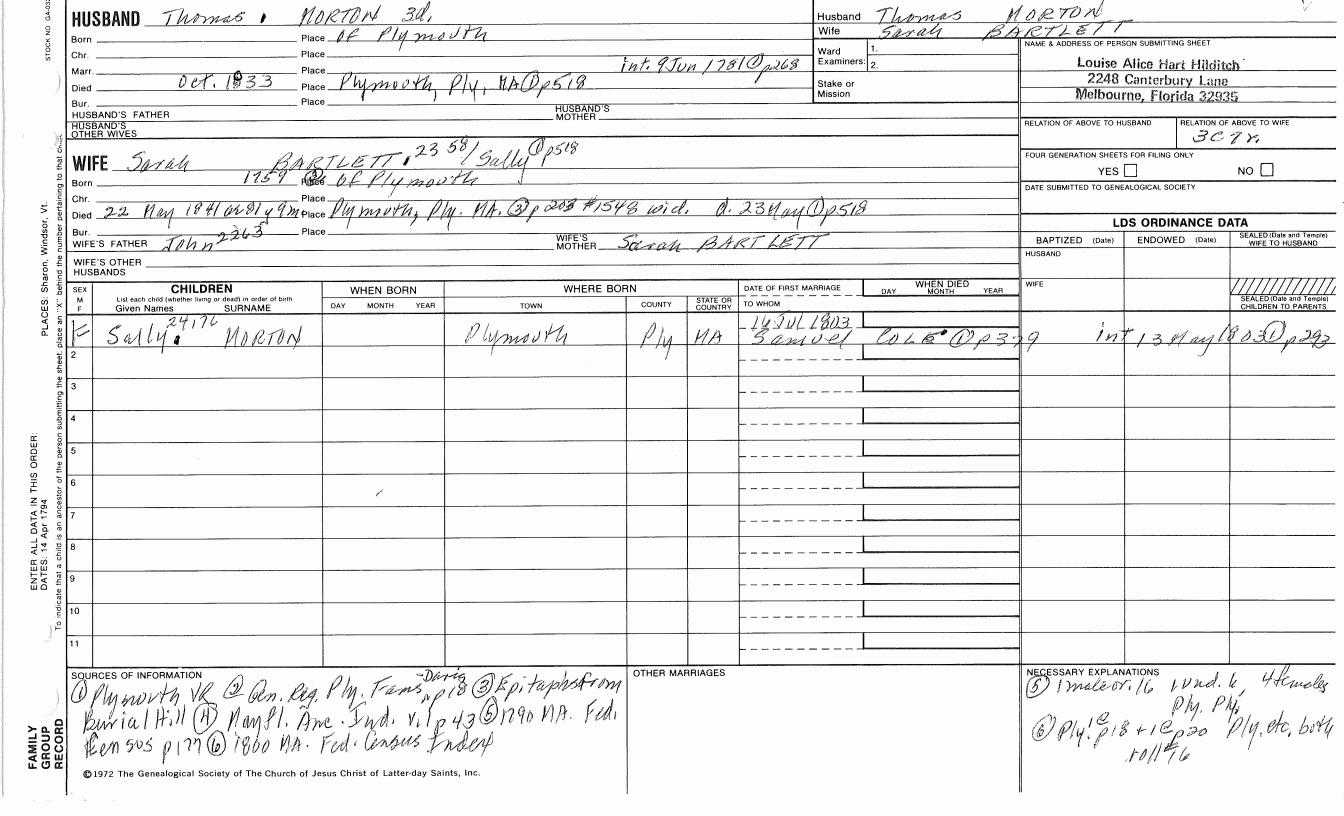 STOCK NO GA-032
HUSBAND Thomas MORTON 3d.
Husband Thomas MORTON
Wife Sarah BARTLETT
Born Place of Plymouth
Chr. Place
Ward Examiners: 1. 2.
Stake or Mission
Marr. Place int. 9 Jun 1781 ① p268
Died Oct. 1833 Place Plymouth, Ply, MA ① p518
Bur. Place
HUSBAND'S FATHER
HUSBAND'S MOTHER
HUSBAND'S OTHER WIVES
NAME & ADDRESS OF PERSON SUBMITTING SHEET
Louise Alice Hart Hilditch
2248 Canterbury Lane
Melbourne, Florida 32935
RELATION OF ABOVE TO HUSBAND
RELATION OF ABOVE TO WIFE
3C7r.
FOUR GENERATION SHEETS FOR FILING ONLY
YES NO
DATE SUBMITTED TO GENEALOGICAL SOCIETY
WIFE Sarah BARTLETT 2358 / Sally ① p518
Born 1759 ② Place of Plymouth
Chr. Place
Died 22 May 1841 or 81y 9m Place Plymouth, Ply. MA. ③ p 203 #1548 wid. d. 23 May ① p518
Bur. Place
WIFE'S FATHER John 2263
WIFE'S MOTHER Sarah BARTLETT
WIFE'S OTHER HUSBANDS
LDS ORDINANCE DATA
BAPTIZED (Date) ENDOWED (Date) SEALED (Date and Temple) WIFE TO HUSBAND
HUSBAND
WIFE
SEALED (Date and Temple) CHILDREN TO PARENTS
SEX M F
CHILDREN
List each child (whether living or dead) in order of birth
Given Names SURNAME
WHEN BORN
DAY MONTH YEAR
WHERE BORN
TOWN COUNTY STATE OR COUNTRY
DATE OF FIRST MARRIAGE
TO WHOM
WHEN DIED
DAY MONTH YEAR
F Sally 24176 MORTON Plymouth Ply MA 16 Jul 1803
Samuel COLE ① p379 int 13 May 1803 ① p293
2
3
4
5
6
7
8
9
10
11
SOURCES OF INFORMATION
① Plymouth VR ② Gen. Reg. Ply. Fams -Davis p18 ③ Epitaphs from
Burial Hill ④ Mayfl. Anc. Ind. v.1 p43 ⑤ 1790 MA. Fed.
Census p177 ⑥ 1800 MA. Fed. Census Index
OTHER MARRIAGES
NECESSARY EXPLANATIONS
⑤ 1 male ov. 16 1 und. 16, 4 females
Ply. Ply,
⑥ Ply! p18 + p20 Ply, etc, both
roll #16
©1972 The Genealogical Society of The Church of Jesus Christ of Latter-day Saints, Inc.
FAMILY GROUP RECORD
ENTER ALL DATA IN THIS ORDER:
DATES: 14 Apr 1794
PLACES: Sharon, Windsor, Vt.
To indicate that a child is an ancestor of the person submitting the sheet, place an "X" behind the number pertaining to that child.